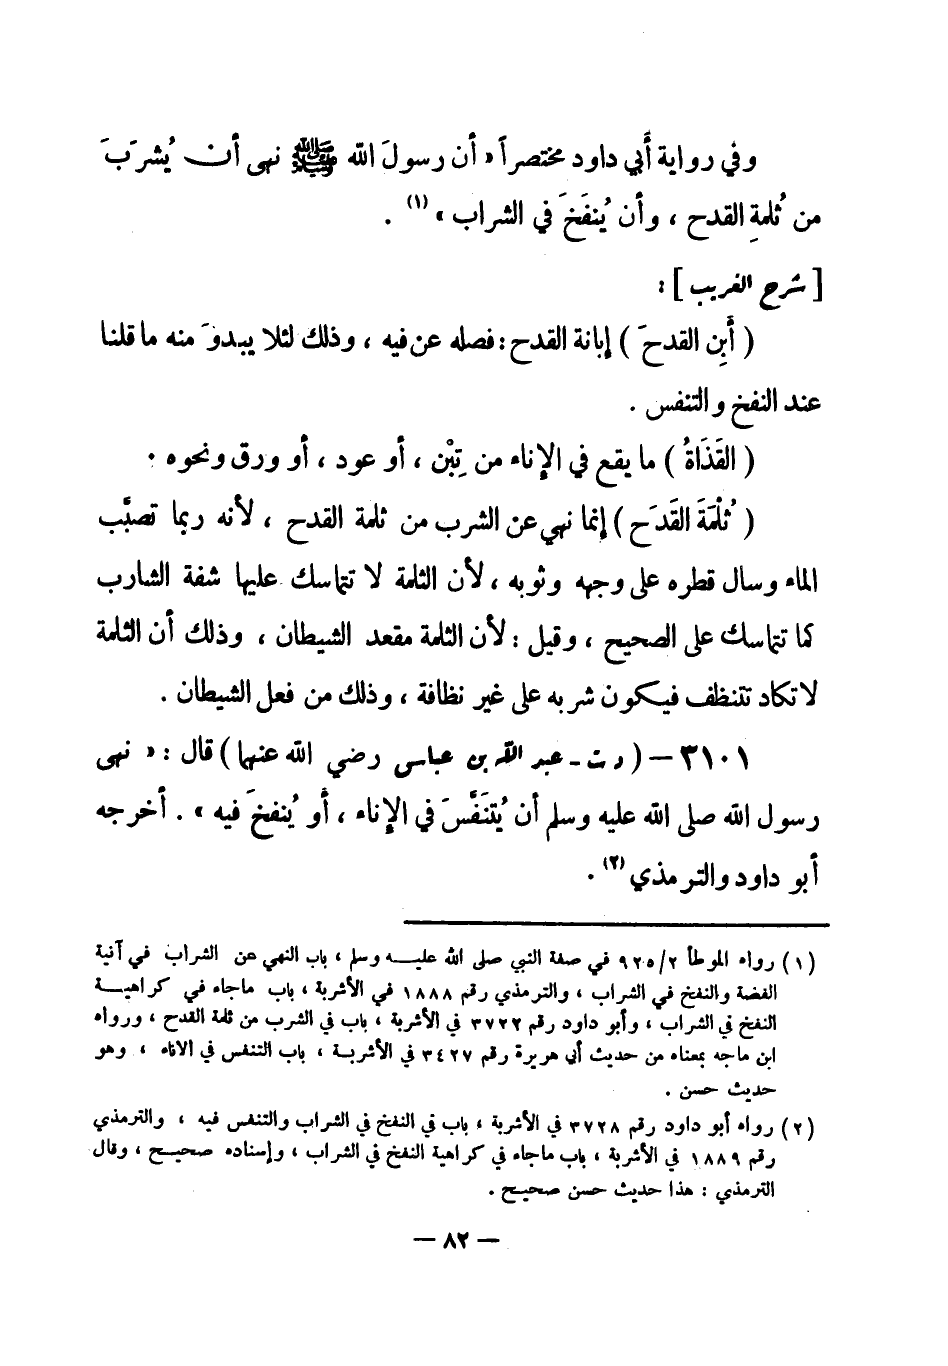 وفي رواية أبي داود مختصراً « أن رسولَ الله ﷺ نهى أن يُشرَبَ
من ثُلمةِ القدح ، وأن يُنفَخَ في الشراب » (١) .
[ شرح الغريب ] :
( أَبِنِ القدحَ ) إبانة القدح : فصله عن فيه ، وذلك لئلا يبدوَ منه ما قلنا
عند النفخ والتنفس .
( القَذَاةُ ) ما يقع في الإناء من تِبْن ، أو عود ، أو ورق ونحوه .
( ثُلْمَةَ القَدَح ) إنما نهي عن الشرب من ثلمة القدح ، لأنه ربما تصبَّب
الماء وسال قطره على وجهه وثوبه ، لأن الثلمة لا تتماسك عليها شفة الشارب
كما تتماسك على الصحيح ، وقيل : لأن الثلمة مقعد الشيطان ، وذلك أن الثلمة
لا تكاد تتنظف فيكون شربه على غير نظافة ، وذلك من فعل الشيطان .
٣١٠١ – ( د ت - عبد الله بن عباس رضي الله عنهما ) قال : « نهى
رسول الله صلى الله عليه وسلم أن يُتنَفَّسَ في الإناء ، أو يُنفخَ فيه » . أخرجه
أبو داود والترمذي (٢) .
(١) رواه الموطأ ٩٢٥/٢ في صفة النبي صلى الله عليه وسلم ، باب النهي عن الشراب في آنية
الفضة والنفخ في الشراب ، والترمذي رقم ١٨٨٨ في الأشربة ، باب ماجاء في كراهية
النفخ في الشراب ، وأبو داود رقم ٣٧٢٢ في الأشربة ، باب في الشرب من ثلمة القدح ، ورواه
ابن ماجه بمعناه من حديث أبي هريرة رقم ٣٤٢٧ في الأشربة ، باب التنفس في الاناء ، وهو
حديث حسن .
(٢) رواه أبو داود رقم ٣٧٢٨ في الأشربة ، باب في النفخ في الشراب والتنفس فيه ، والترمذي
رقم ١٨٨٩ في الأشربة ، باب ماجاء في كراهية النفخ في الشراب ، وإسناده صحيح ، وقال
الترمذي : هذا حديث حسن صحيح .
– ٨٢ –